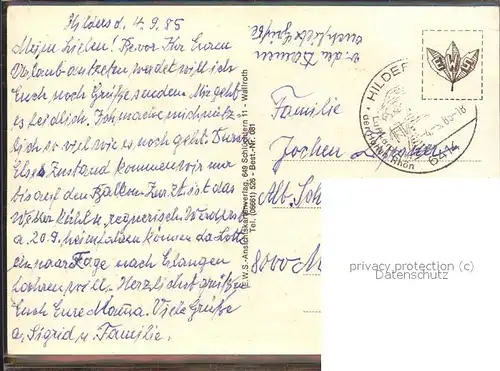 Hilders d. 4.9.85
Meine Lieben! Bevor Ihr Euren
Urlaub antreten werdet will ich
Euch noch Grüße senden. Mir geht
es leidlich. Ich mache mich nütz-
lich so viel wie es noch geht. Durch
Elses Zustand kommen wir nur
bis auf den Balkon. Zur Zt. ist das
Wetter kühl u. regnerisch. Werde
a. 20.9. heimfahren können da Lotte
ein paar Tage nach Erlangen
fahren will. Herzlichst grüßt
Euch Eure Mama. Viele Grüße
a. Sigrid u. Familie.
E.W.S.-Ansichtskartenverlag, 649 Schlüchtern 11 - Wallroth
Tel. (06661) 526 - Best.-Nr. 081
Familie
Jochen
Alt. Sch
8000 M
EWS
HILDERS
-4.-9.85-18
6414
privacy protection (c)
Datenschutz